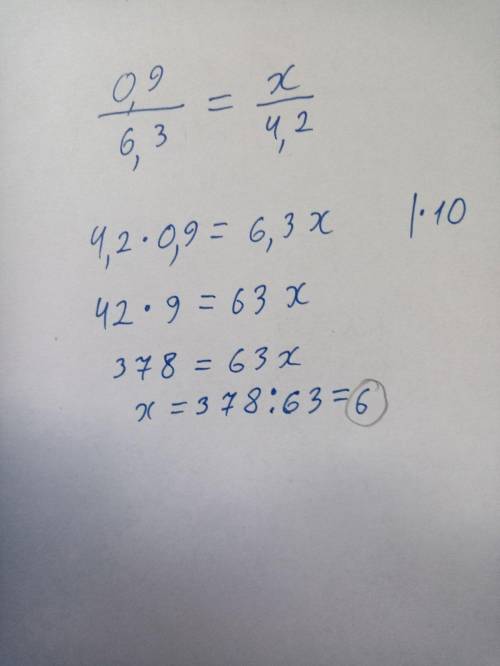 0,9/6,3 = x/4,2
4,2 · 0,9 = 6,3 x |· 10
42 · 9 = 63 x
378 = 63x
x = 378 : 63 = 6